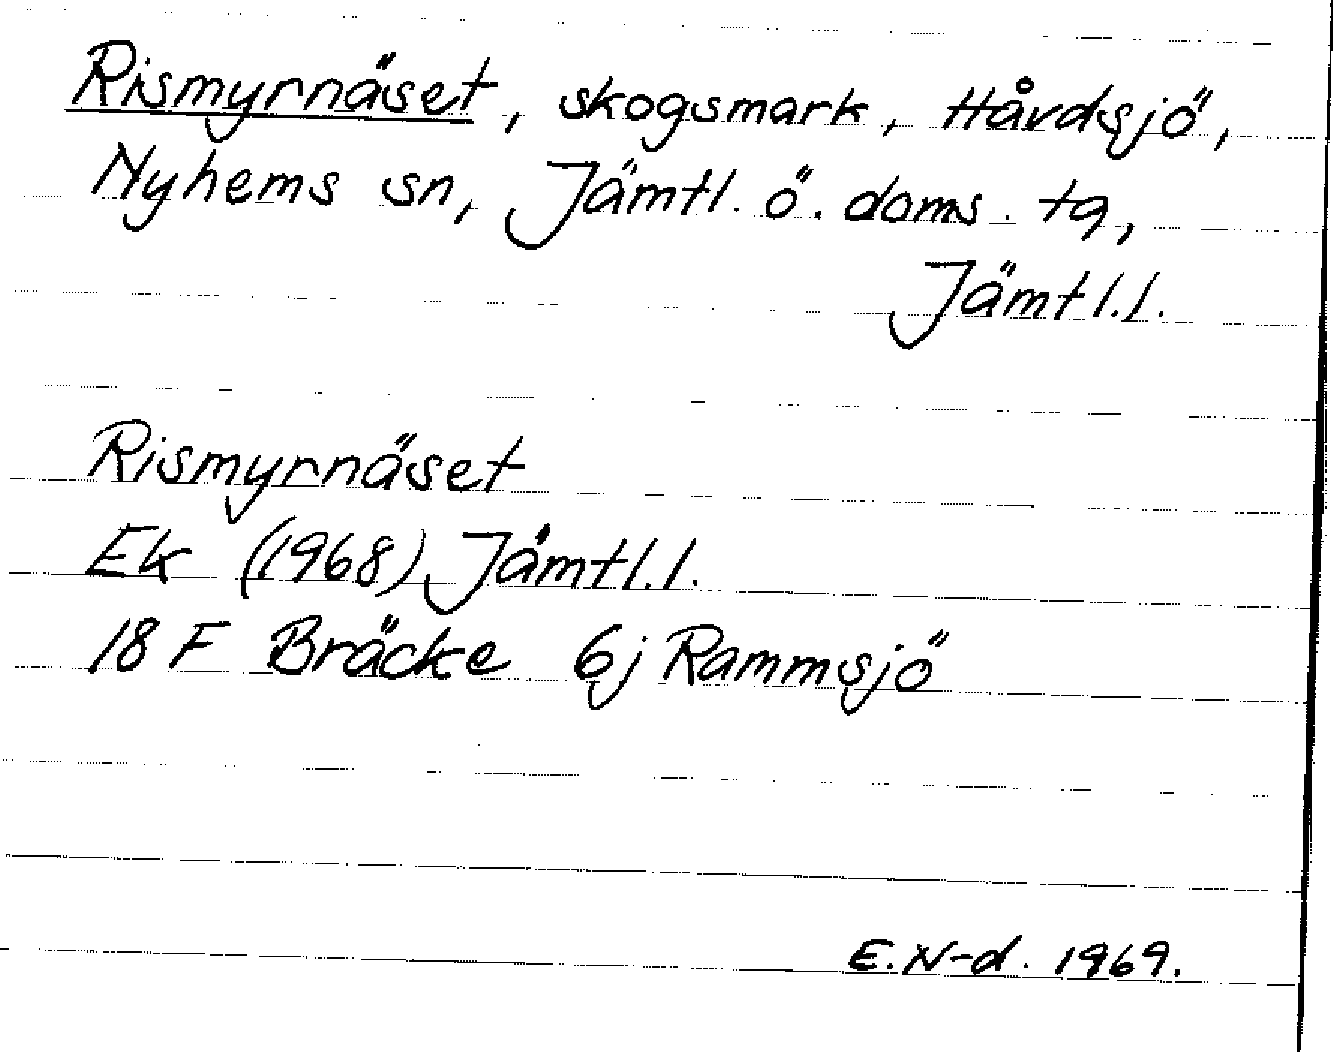 Rismyrnäset, skogsmark, Håvdsjö,
Nyhems sn, Jämtl. ö. doms. tg,
Jämtl.l.
Rismyrnäset
Ek (1968) Jämtl.l.
18 F Bräcke 6j Rammsjö
E.N-d. 1969.